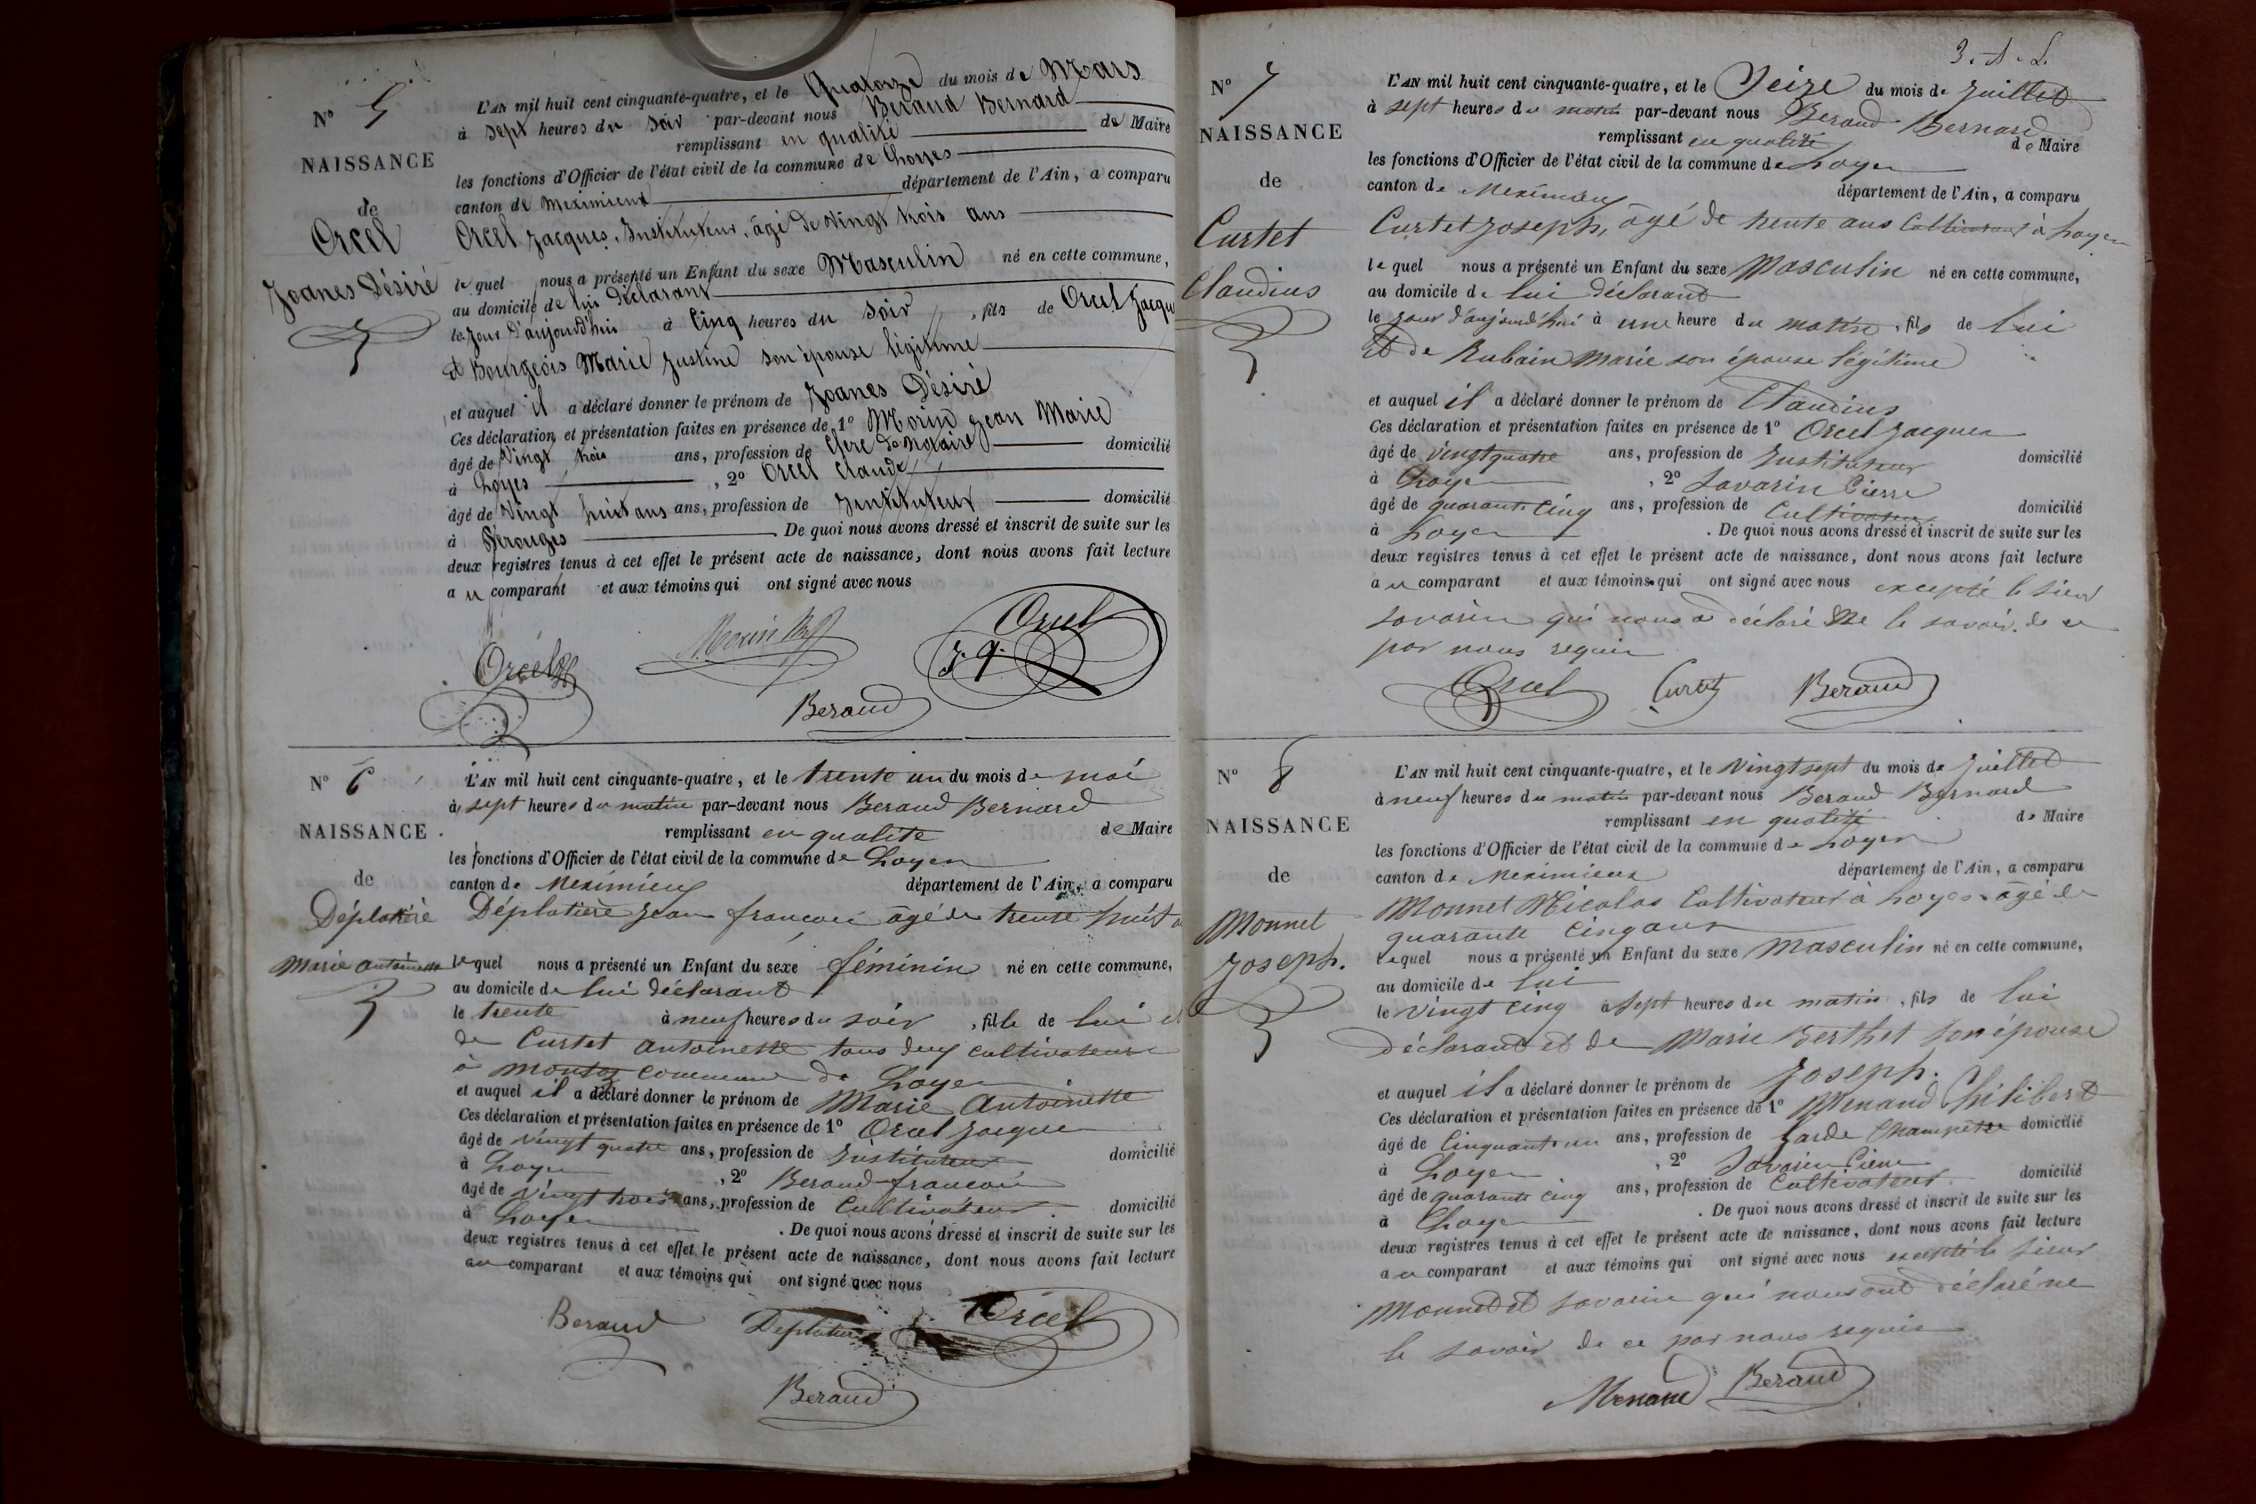 N° 5
NAISSANCE
de
Orcel
Joanes Désiré
L'AN mil huit cent cinquante-quatre, et le Quatorze du mois de Mars
à sept heures du soir par-devant nous Beraud Bernard
remplissant en qualité de Maire
les fonctions d'Officier de l'état civil de la commune de Loyes
canton de Meximieux département de l'Ain, a comparu
Orcel Jacques, Instituteur, âgé de vingt trois ans
le quel nous a présenté un Enfant du sexe Masculin né en cette commune,
au domicile de lui déclarant
le jour d'aujourd'hui à Cinq heures du soir, fils de Orcel Jacques
et Bourgeois Marie Justine son épouse légitime
et auquel il a déclaré donner le prénom de Joanes Désiré
Ces déclaration et présentation faites en présence de 1° Morin Jean Marie
âgé de vingt trois ans, profession de Clerc de notaire domicilié
à Loyes, 2° Orcel Claude
âgé de vingt huit ans ans, profession de Instituteur domicilié
à Pérouges. De quoi nous avons dressé et inscrit de suite sur les
deux registres tenus à cet effet le présent acte de naissance, dont nous avons fait lecture
au comparant et aux témoins qui ont signé avec nous
Orcel
Morin
Orcel
Beraud
N° 6
NAISSANCE
de
Déplatière
Marie Antoinette
L'AN mil huit cent cinquante-quatre, et le trente un du mois de mai
à sept heures du matin par-devant nous Beraud Bernard
remplissant en qualité de Maire
les fonctions d'Officier de l'état civil de la commune de Loyes
canton de Meximieux département de l'Ain, a comparu
Déplatière Jean françois âgé de trente huit a
le quel nous a présenté un Enfant du sexe féminin né en cette commune,
au domicile de lui déclarant
le trente à neuf heures du soir, fille de lui et
de Curtet Antoinette tous deux cultivateurs
à Montoz commune de Loyes
et auquel il a déclaré donner le prénom de Marie Antoinette
Ces déclaration et présentation faites en présence de 1° Orcel Jacques
âgé de vingt quatre ans, profession de Instituteur domicilié
à Loyes, 2° Beraud françois
âgé de vingt trois ans, profession de Cultivateur domicilié
à Loyes. De quoi nous avons dressé et inscrit de suite sur les
deux registres tenus à cet effet le présent acte de naissance, dont nous avons fait lecture
au comparant et aux témoins qui ont signé avec nous
Beraud
Deplatiere
Orcel
Beraud
N° 7
NAISSANCE
de
Curtet
Claudius
L'AN mil huit cent cinquante-quatre, et le Seize du mois de Juillet
à sept heures du matin par-devant nous Beraud Bernard
remplissant en qualité de Maire
les fonctions d'Officier de l'état civil de la commune de Loyes
canton de Meximieux département de l'Ain, a comparu
Curtet Joseph, âgé de trente ans Cultivateur à Loyes
le quel nous a présenté un Enfant du sexe Masculin né en cette commune,
au domicile de lui déclarant
le jour d'aujourd'hui à une heure du matin, fils de lui
Et de Rubain Marie son épouse légitime
et auquel il a déclaré donner le prénom de Claudius
Ces déclaration et présentation faites en présence de 1° Orcel Jacques
âgé de vingt quatre ans, profession de Instituteur domicilié
à Loyes, 2° Savarin Pierre
âgé de quarante cinq ans, profession de Cultivateur domicilié
à Loyes. De quoi nous avons dressé et inscrit de suite sur les
deux registres tenus à cet effet le présent acte de naissance, dont nous avons fait lecture
au comparant et aux témoins qui ont signé avec nous excepté le sieur
Savarin qui nous a déclaré ne le savoir de ce
par nous requis
Orcel
Curtet
Beraud
N° 8
NAISSANCE
de
Monnet
Joseph.
L'AN mil huit cent cinquante-quatre, et le vingt sept du mois de Juillet
à neuf heures du matin par-devant nous Beraud Bernard
remplissant en qualité de Maire
les fonctions d'Officier de l'état civil de la commune de Loyes
canton de Meximieux département de l'Ain, a comparu
Monnet Nicolas Cultivateur à Loyes âgé de
quarante cinq ans
le quel nous a présenté un Enfant du sexe masculin né en cette commune,
au domicile de lui
le vingt cinq à sept heures du matin, fils de lui
déclarant et de Marie Berthet son épouse
et auquel il a déclaré donner le prénom de Joseph.
Ces déclaration et présentation faites en présence de 1° Menand Philibert
âgé de Cinquante un ans, profession de garde Champêtre domicilié
à Loyes, 2° Savarin Pierre
âgé de quarante cinq ans, profession de Cultivateur domicilié
à Loyes. De quoi nous avons dressé et inscrit de suite sur les
deux registres tenus à cet effet le présent acte de naissance, dont nous avons fait lecture
au comparant et aux témoins qui ont signé avec nous excepté le sieur
Monnet et Savarin qui nous ont déclaré ne
le savoir de ce par nous requis
Menand
Beraud